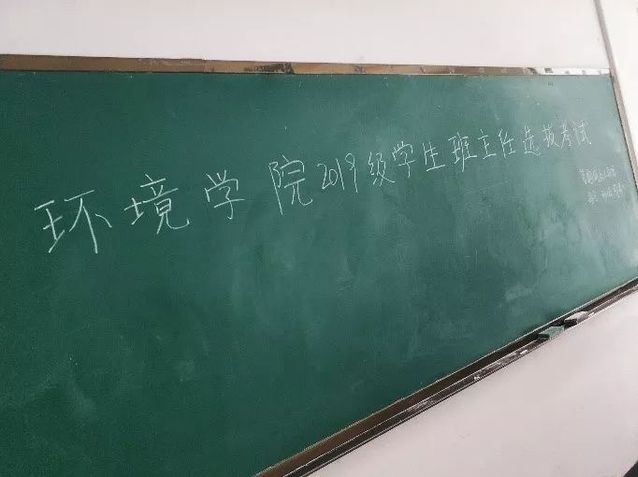 环境学院2019级学生班主任选拔考试